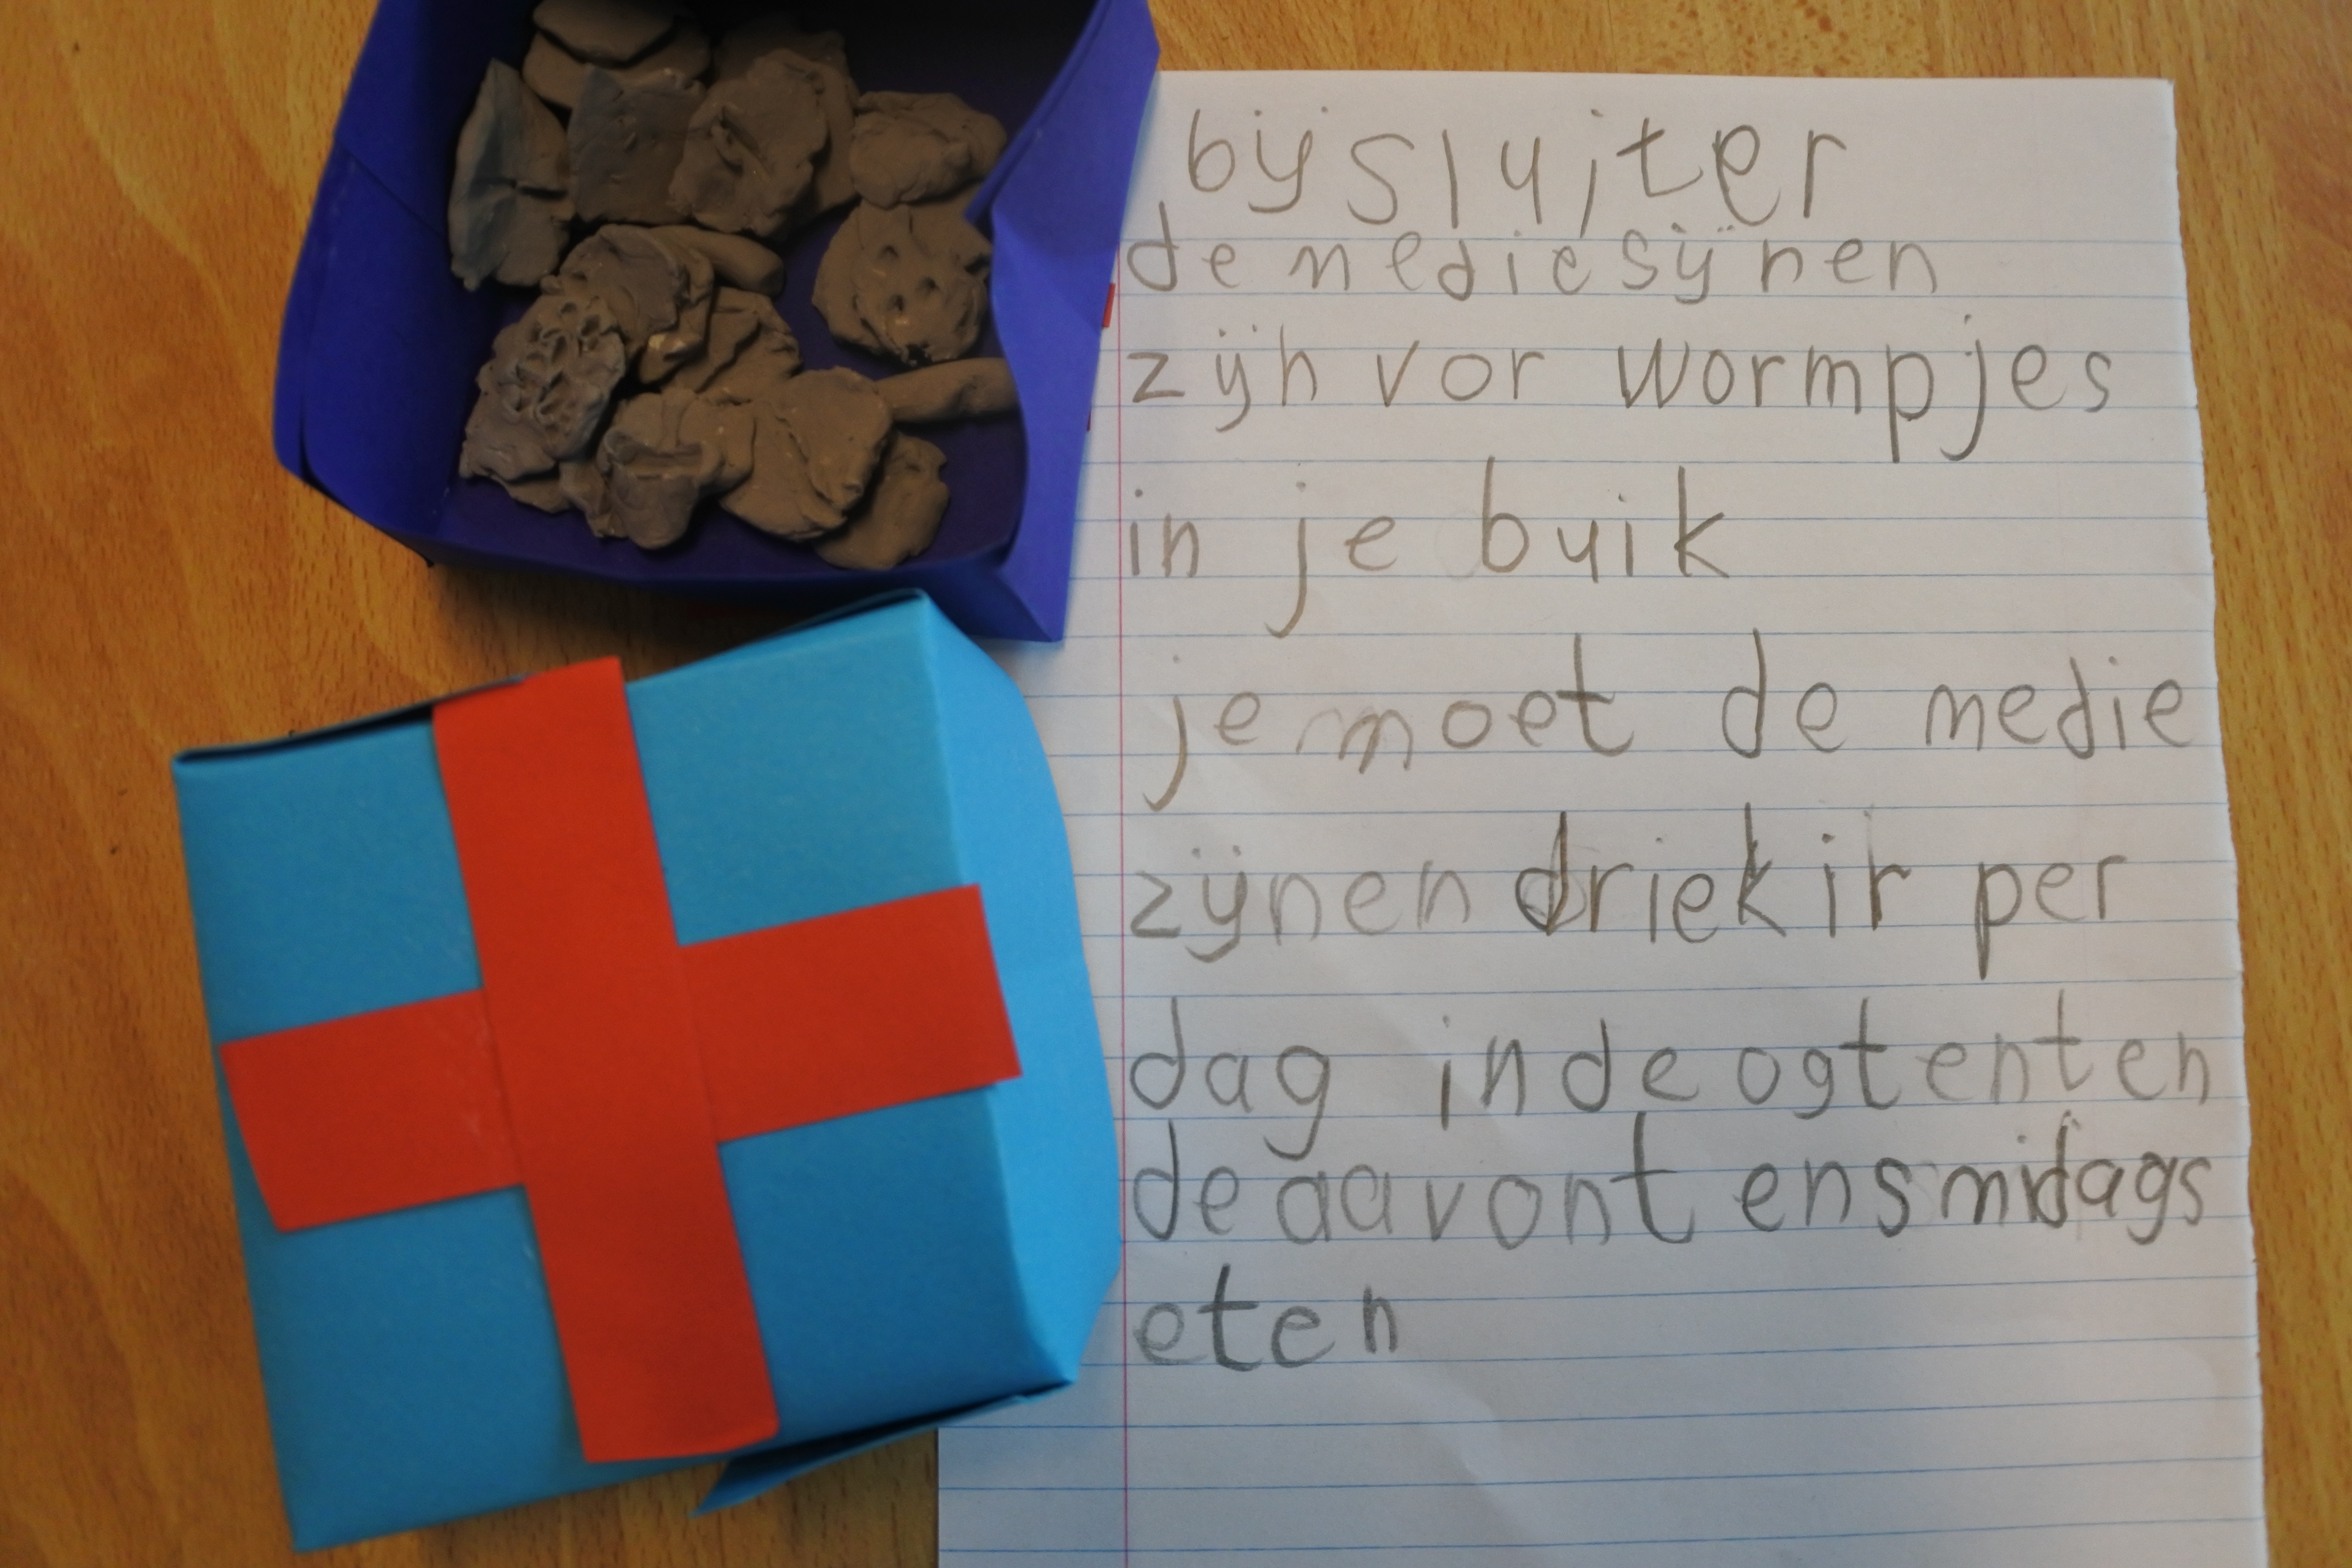 bijsluiter
de mediesijnen
zijn vor wormpjes
in je buik
je moet de medie
zijnen driekir per
dag in de ogtent en
de aavont ensmidags
eten